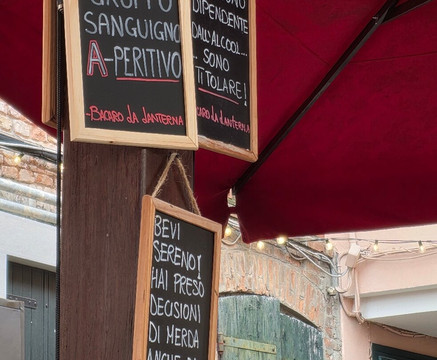 GRUPPO
SANGUIGNO
A-PERITIVO
-BACARO da LANTERNA
DIPENDENTE
DALL'ALCOOL...
- SONO
TITOLARE!
BEVI
SERENO!
HAI PRESO
DECISIONI
DI MERDA